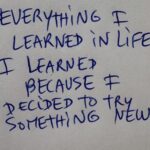 EVERYTHING I
LEARNED IN LIFE
I LEARNED
BECAUSE I
DECIDED TO TRY
SOMETHING NEW